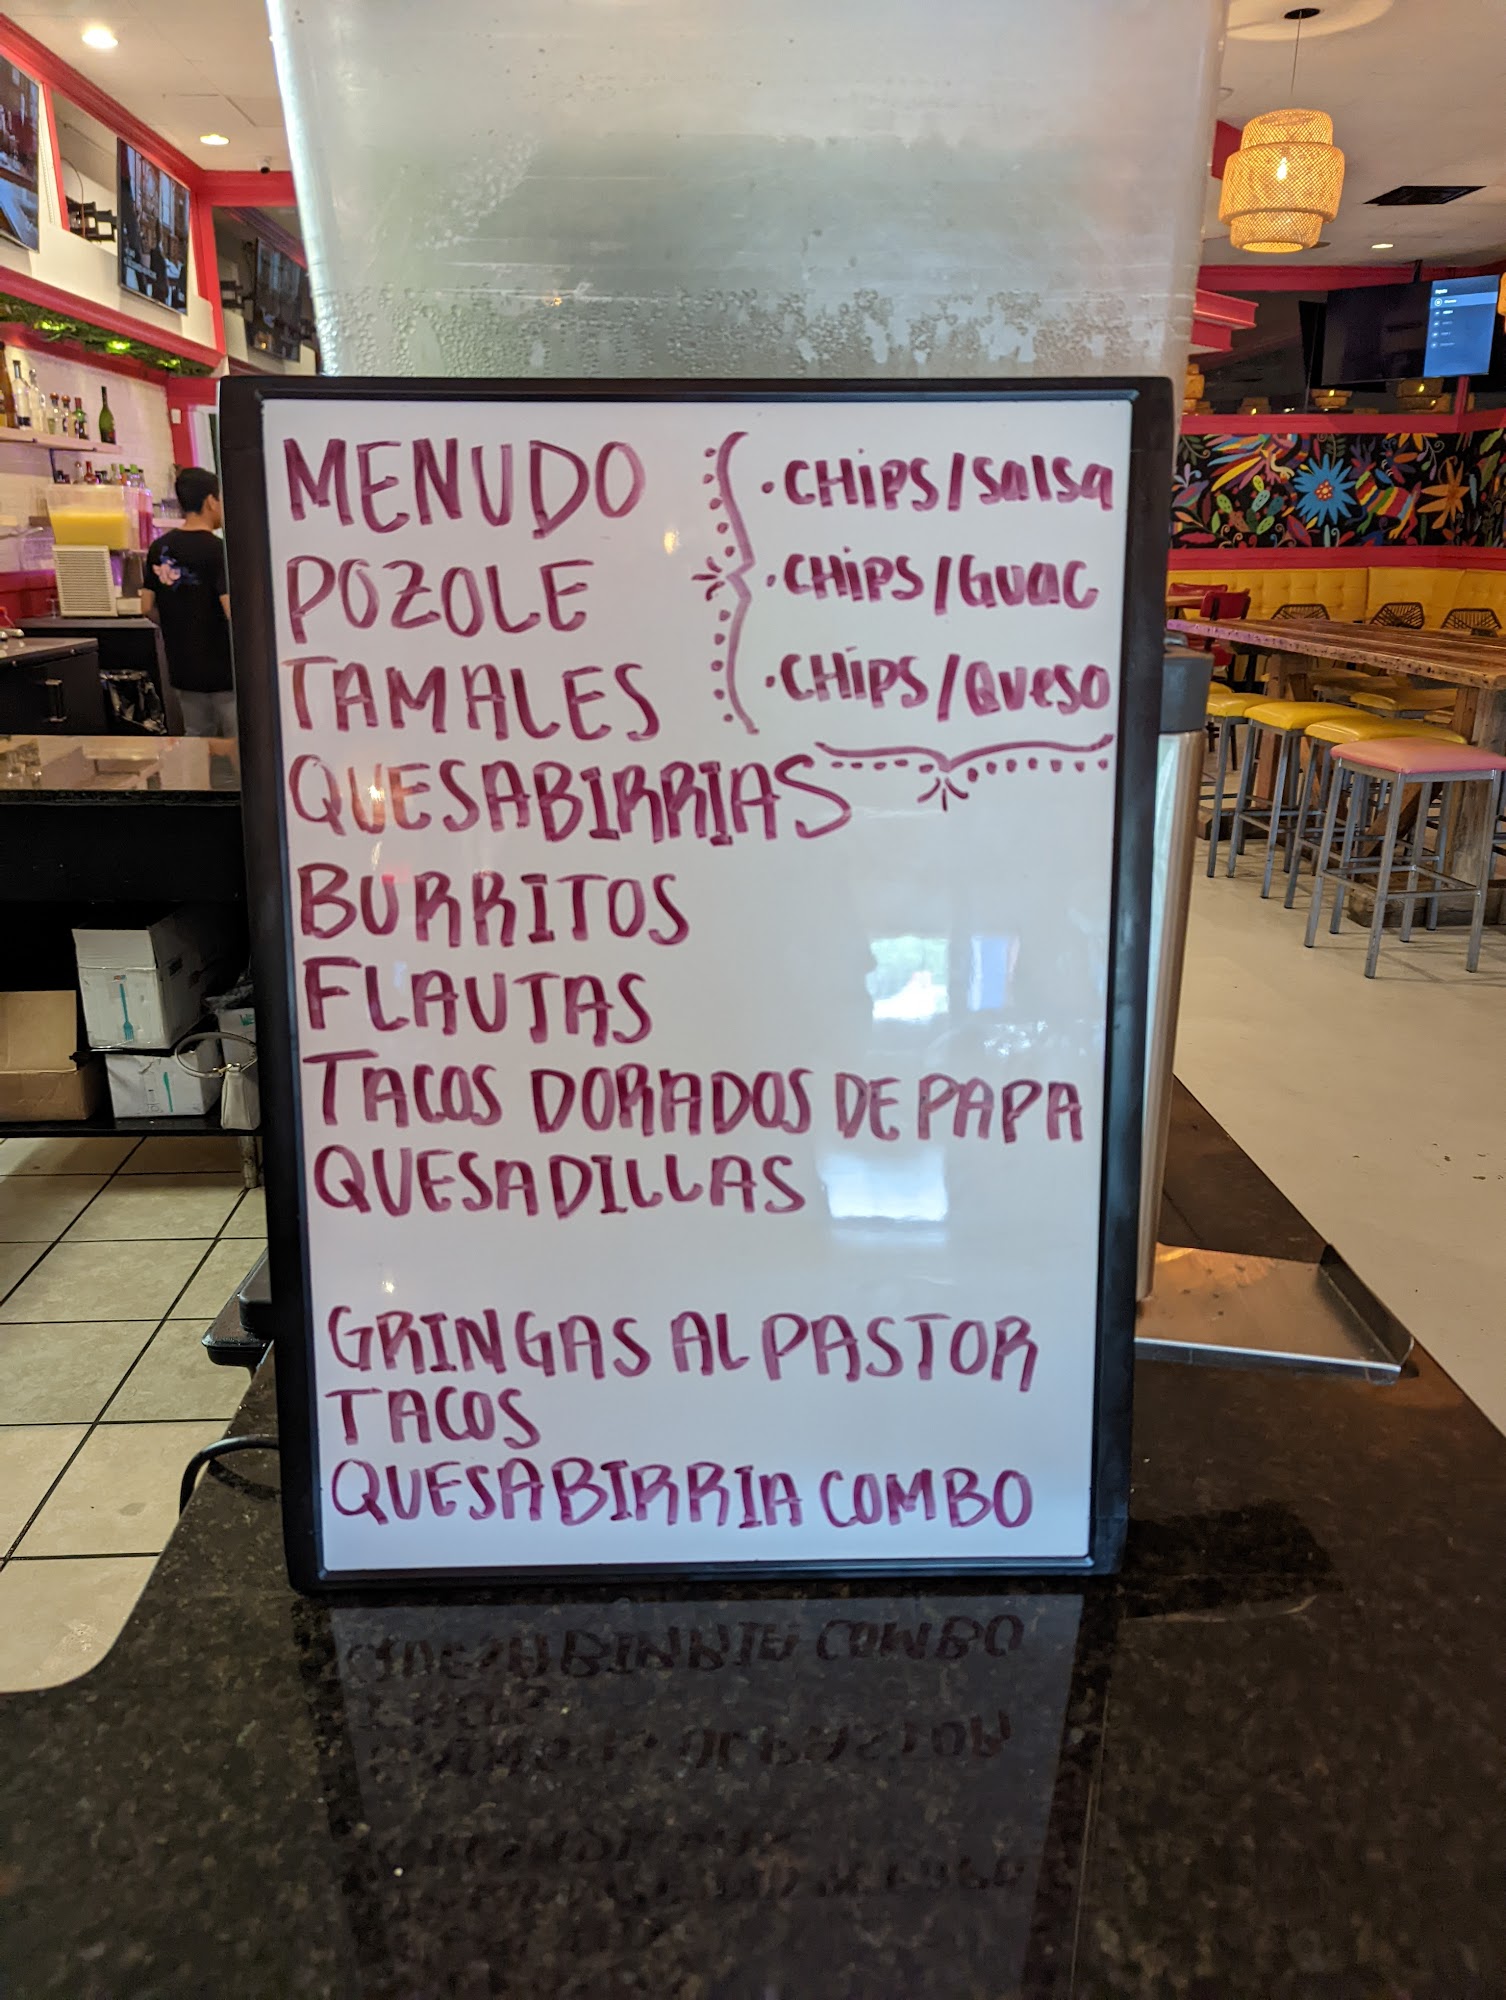 MENUDO
POZOLE
TAMALES
QUESABIRRIAS
BURRITOS
FLAUTAS
TACOS DORADOS DE PAPA
QUESADILLAS
GRINGAS AL PASTOR
TACOS
QUESABIRRIA COMBO
• CHIPS/SALSA
• CHIPS/GUAC
• CHIPS/QUESO